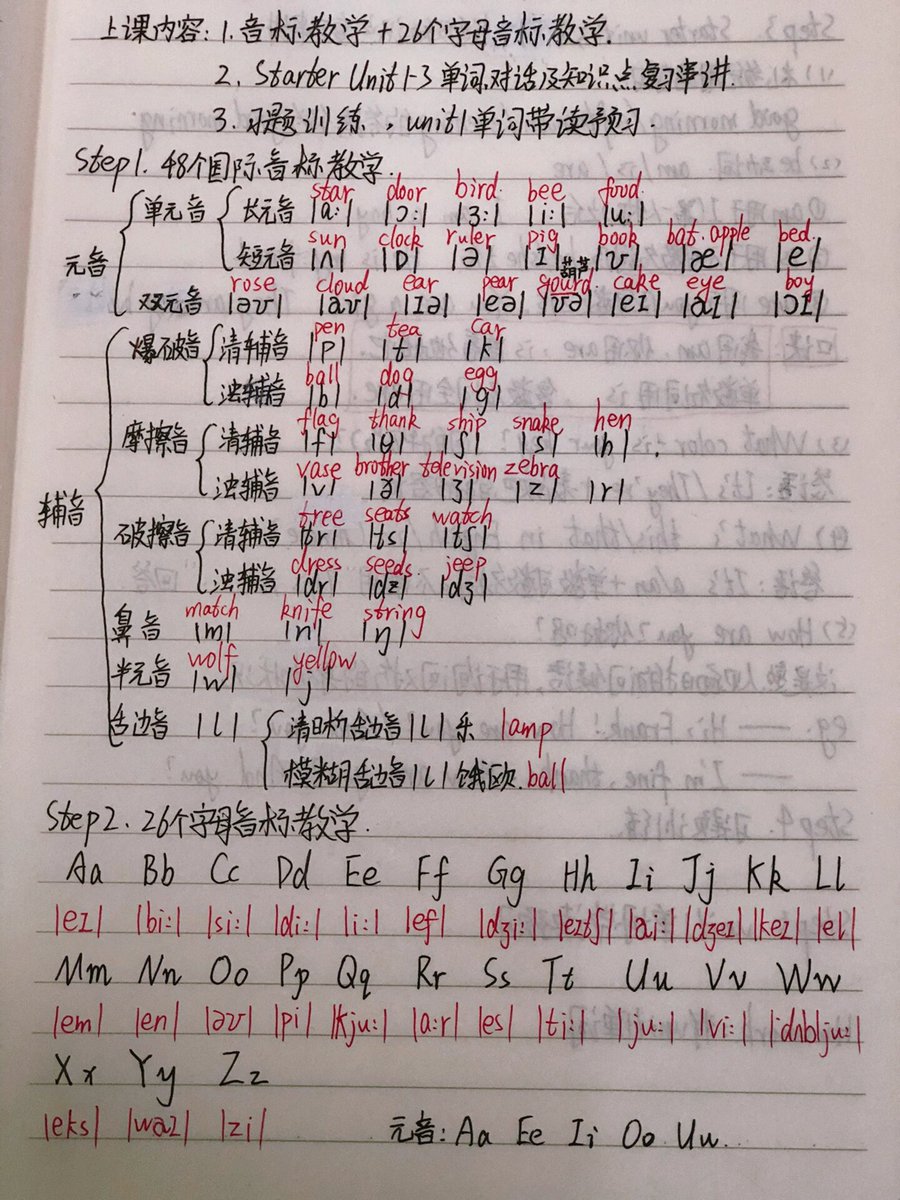 上课内容: 1. 音标教学 + 26个字母音标教学.
2. Starter Unit 1-3 单词,对话及知识点复习串讲.
3. 习题训练, unit1 单词带读预习.
Step1. 48个国际音标教学.
star door bird bee food
单元音 长元音 |ɑ:| |ɔ:| |ɜ:| |i:| |u:|
sun clock ruler pig book bat.apple bed.
元音 短元音 |ʌ| |ɒ| |ə| |ɪ| |ʊ| |æ| |e|
葫芦
rose cloud ear pear gourd cake eye boy
双元音 |əʊ| |aʊ| |ɪə| |eə| |ʊə| |eɪ| |aɪ| |ɔɪ|
pen tea car
爆破音 清辅音 |p| |t| |k|
ball dog egg
浊辅音 |b| |d| |g|
flag thank ship snake hen
摩擦音 清辅音 |f| |θ| |ʃ| |s| |h|
vase brother television zebra
浊辅音 |v| |ð| |ʒ| |z| |r|
辅音
tree seats watch
破擦音 清辅音 |tr| |ts| |tʃ|
dress seeds jeep
浊辅音 |dr| |dz| |dʒ|
match knife string
鼻音 |m| |n| |ŋ|
wolf yellow
半元音 |w| |j|
舌边音 |l| 清晰舌边音 |l| 乐 lamp
模糊舌边音 |l| 饿欧. ball
Step2. 26个字母音标教学.
Aa Bb Cc Dd Ee Ff Gg Hh Ii Jj Kk Ll
|eɪ| |bi:| |si:| |di:| |i:| |ef| |dʒi:| |eɪtʃ| |ai:| |dʒeɪ| |keɪ| |el|
Mm Nn Oo Pp Qq Rr Ss Tt Uu Vv Ww
|em| |en| |əʊ| |pi| |kju:| |a:r| |es| |ti:| |ju:| |vi:| |'dʌblju:|
Xx Yy Zz
|eks| |waɪ| |zi|
元音: Aa Ee Ii Oo Uu.